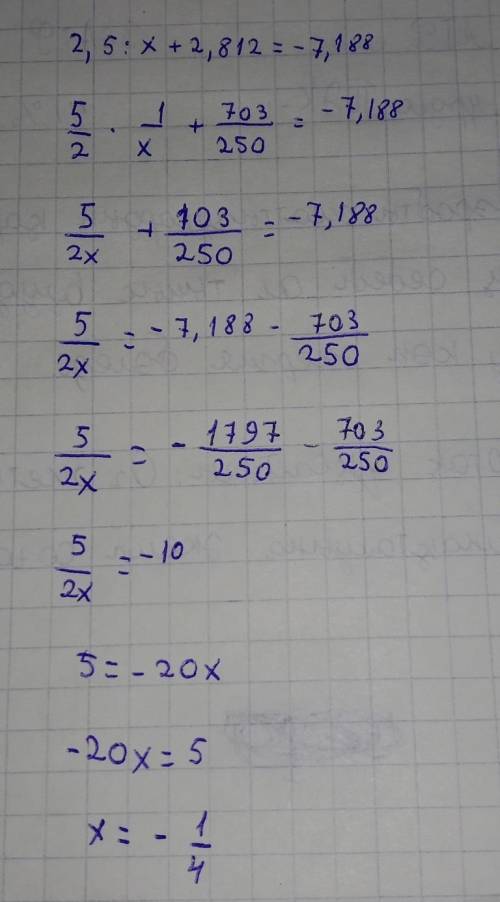 2,5 : x + 2,812 = -7,188
5/2 · 1/x + 703/250 = -7,188
5/2x + 703/250 = -7,188
5/2x = -7,188 - 703/250
5/2x = - 1797/250 - 703/250
5/2x = -10
5 = -20x
-20x = 5
x = - 1/4